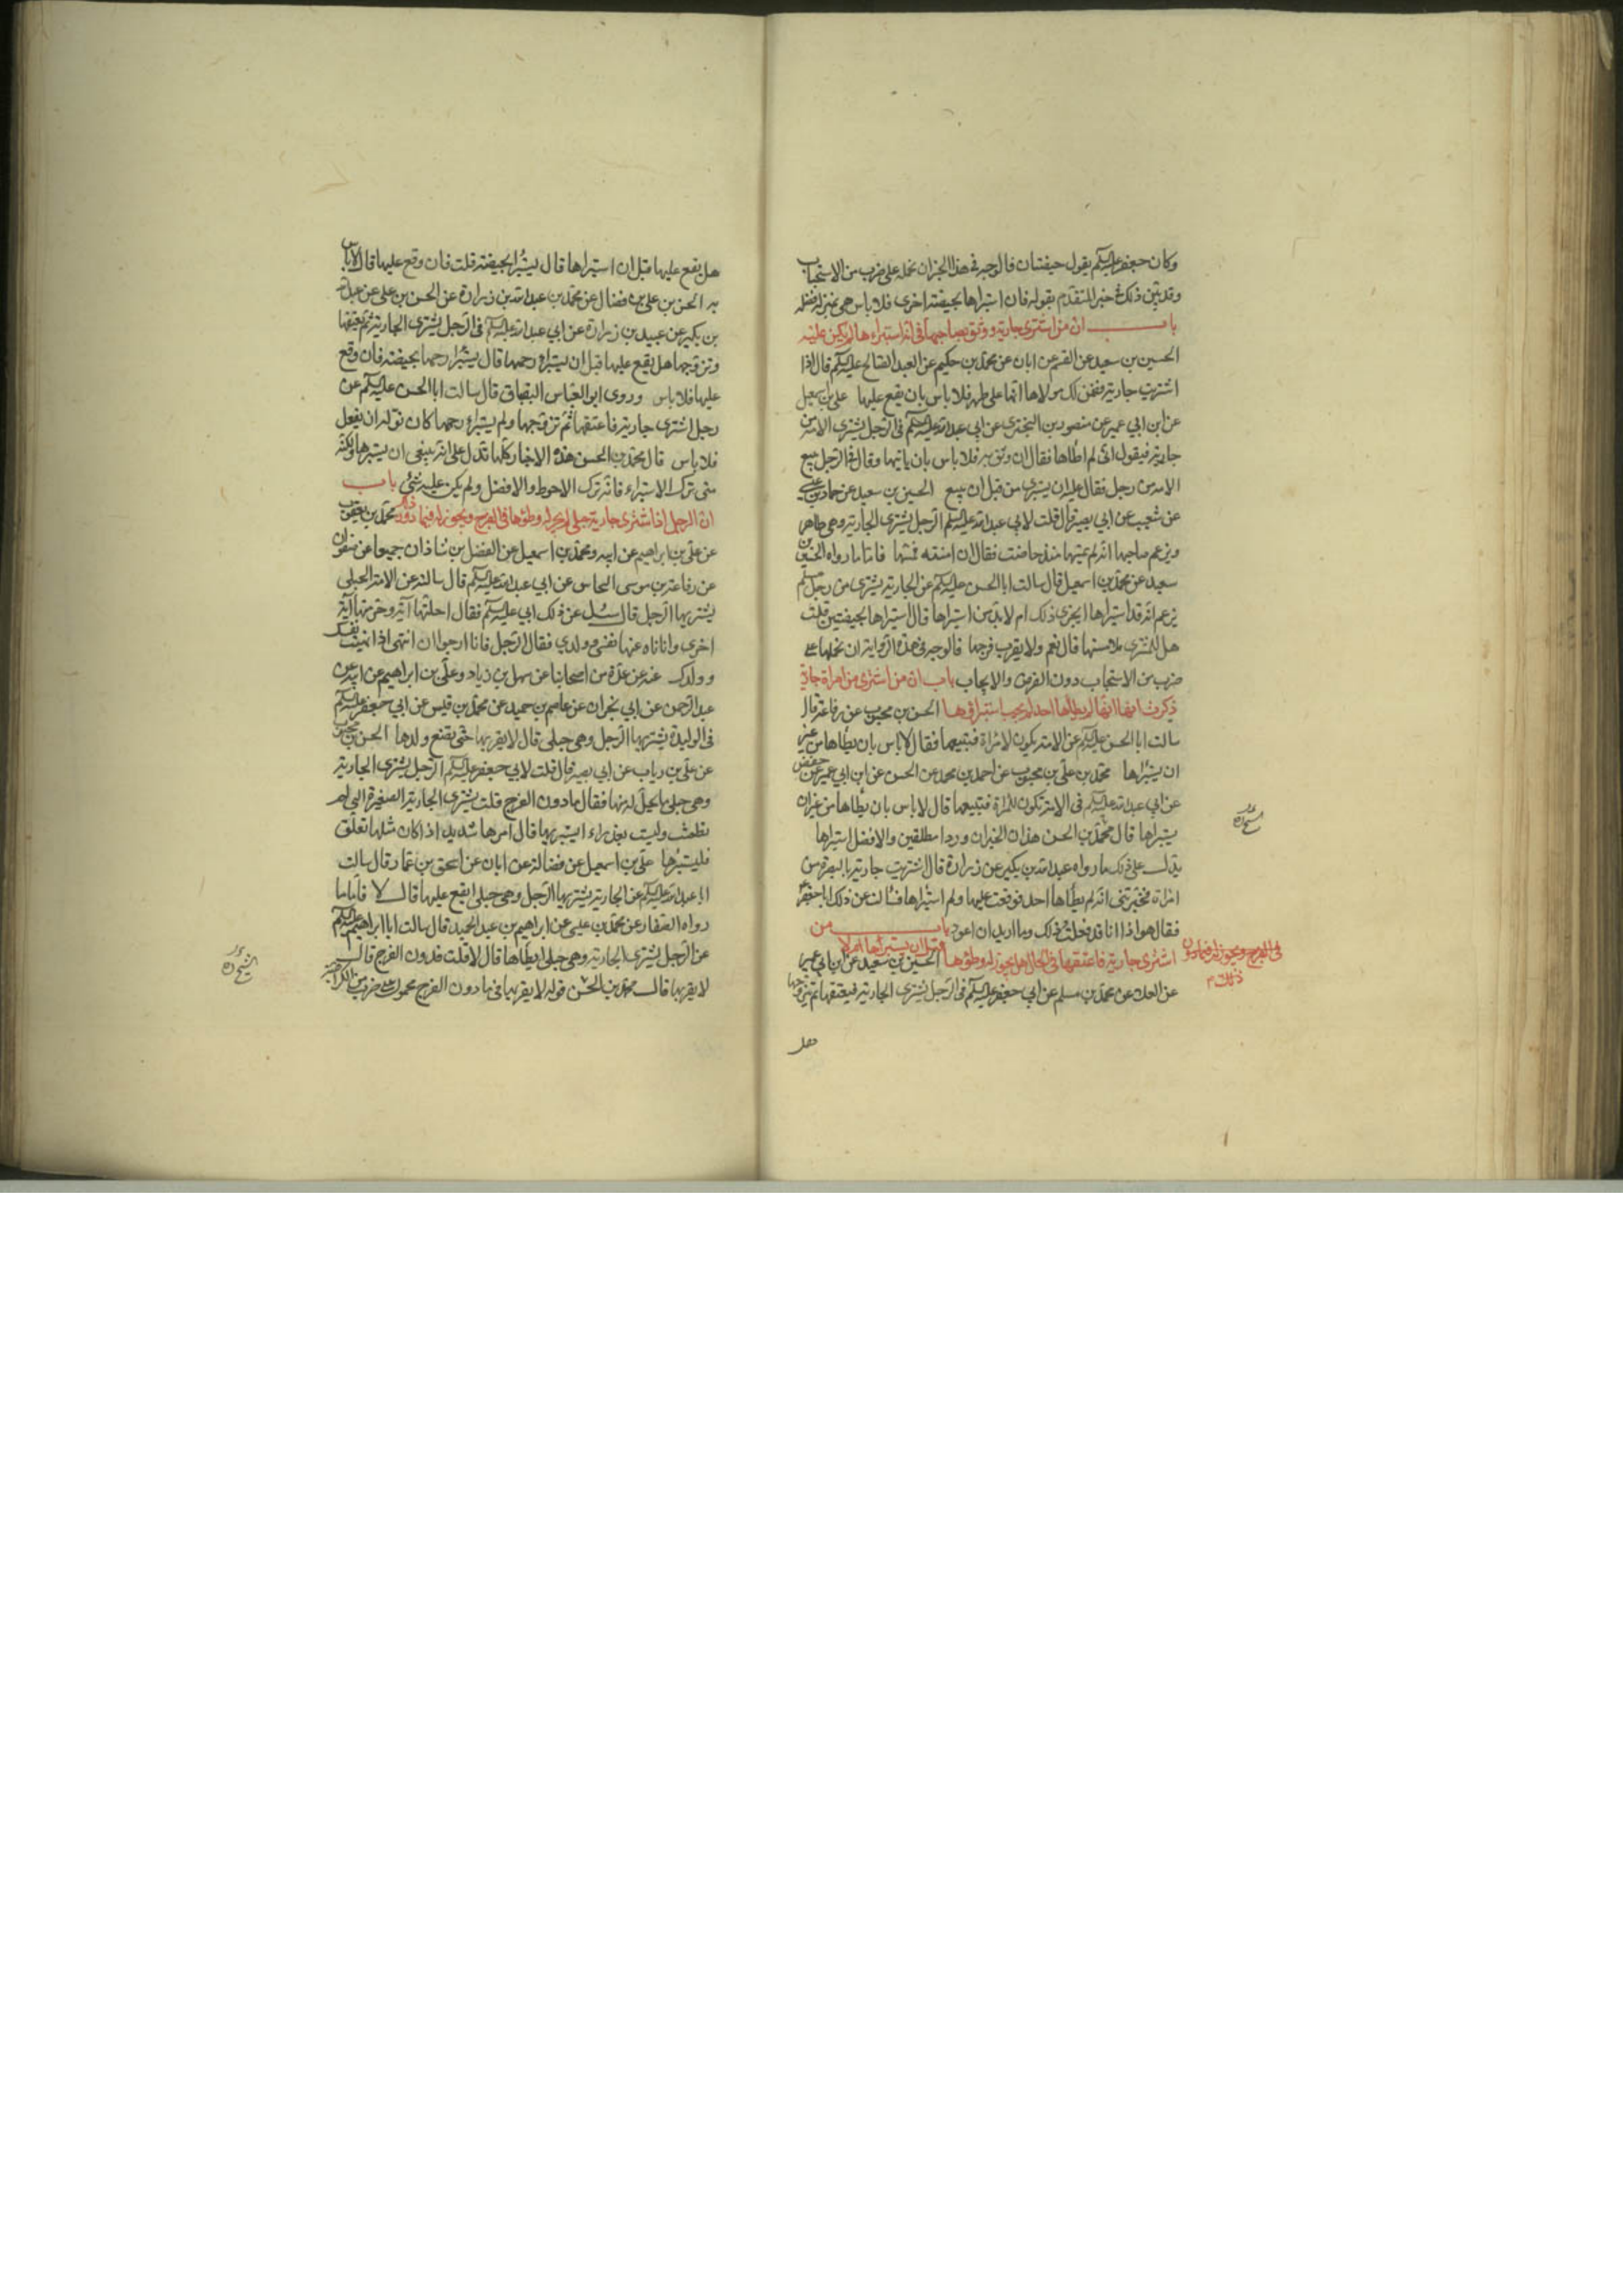 وكان جعفر عليه السلم يقول حيضتان فالوجه في هذا الخبر ان نحمله على ضرب من الاستحباب
وقد بيّن ذلك في خبر المتقدّم بقوله فان استبراها بحيضة اخرى فلا باس هي بمنزلة فضله
باب ان من اشترى جارية ووثق بصاحبها في انه استبراءها لم يكن عليه
الحسين بن سعيد عن القسم عن ابان عن محمّد بن حكيم عن العبد الصالح عليه السلم قال اذا
اشتريت جارية فضمن لك مولاها انها على طهر فلا باس بان يقع عليها علي بن اسمعيل
عن ابن ابي عمير عن منصور بن البختري عن ابي عبد الله عليه السلم في الرّجل يشتري الامة من
رجل فيقول انّي لم اطأها فقال ان وثق به فلا باس بان ياتيها وقال في الرّجل يبيع
الامة من رجل فقال عليه ان يستبرئ من قبل ان يبيع الحسين بن سعيد عن حماد بن عيسى
عن شعيب عن ابي بصير قال قلت لابي عبد الله عليه السلم الرّجل يشتري الجارية وهي طاهر
ويزعم صاحبها انه لم يمسّها منذ حاضت فقال ان امنته فمسّها فامّا ما رواه الحسين بن
سعيد عن محمّد بن اسمعيل قال سالت ابا الحسن عليه السلم عن الجارية يشترى من رجل مسلم
يزعم انه قد استبراها ايجزي ذلك ام لا بدّ من استبراها قال استبراها بحيضتين قلت
هل للمشتري ملامستها قال نعم ولا يقرب فرجها فالوجه في هذه الرّواية ان نحملها على
ضرب من الاستحباب دون الفرض والايجاب باب ان من اشترى من امراة جارية
ذكرت انها لم يطأها احد لم يجب استبراؤها الحسن بن محبوب عن رفاعة قال
سالت ابا الحسن عليه السلم عن الامة يكون لامراة فتبيعها فقال لا باس بان يطأها من غير
ان يستبراها محمّد بن علي بن محبوب عن احمد بن محمد عن الحسن عن ابن ابي عمير عن حفص
عن ابي عبد الله عليه السلم في الامة تكون للمراة فتبيعها قال لا باس بان يطأها من غير ان
يستبراها قال محمّد بن الحسن هذان الخبران وردا مطلقين والافضل استبراها
يدلّ على ذلك ما رواه عبد الله بن بكير عن زرارة قال اشتريت جارية بالبصرة من
امراة فخبرتني انه لم يطأها احد فوقعت عليها ولم استبراها فسالت عن ذلك ابا جعفر
فقال هو اذا انا قد فعلت ذلك وما اريد ان اعود باب من
اشترى جارية فاعتقها في الحال هل يجوز له وطؤها قبل ان يستبرأها ام لا الحسين بن سعيد عن ابن ابي عمير
عن العلا عن محمّد بن مسلم عن ابي جعفر عليه السلم في الرّجل يشتري الجارية فيعتقها ثم يتزوجها
في الفرج ويجوز له فيما دون
ذلك
هل
هل يقع عليها قبل ان استبراها قال يستبرا بحيضة قلت فان وقع عليها قال لا باس
به الحسن بن علي بن فضال عن محمّد بن عبد الله بن زرارة عن الحسن بن علي عن عبد الله
بن بكير عن عبيد بن زرارة عن ابي عبد الله عليه السلم في الرّجل يشتري الجارية ثم يعتقها
وتزوّجها هل يقع عليها قبل ان يستبرا رحمها قال يستبرا رحمها بحيضة فان وقع
عليها فلا باس وروى ابو العباس البقباق قال سالت ابا الحسن عليه السلم عن
رجل اشترى جارية فاعتقها ثمّ تزوّجها ولم يستبرا رحمها كان نوله ان يفعل
فلا باس قال محمّد بن الحسن هذه الاخبار كلّها تدلّ على انه ينبغي ان يستبرها ولكنّه
متى ترك الاستبراء فانه ترك الاحوط والافضل ولم يكن عليه شئ باب
ان الرجل اذا اشترى جارية حبلى لم يجز له وطؤها في الفرج ويجوز له فيما دونه محمّد بن يعقوب
عن علي بن ابراهيم عن ابيه ومحمّد بن اسمعيل عن الفضل بن شاذان جميعا عن صفوان
عن رفاعة بن موسى النحاس عن ابي عبد الله عليه السلم قال سالته عن الامة الحبلى
يشتريها الرّجل قال سئل عن ذلك ابي عليه السلم فقال احلّتها آية وحرمتها آية
اخرى وانا ناه عنها نفسي وولدي فقال الرّجل فانا ارجو ان انتهي اذا نهيت نفسك
وولدك عنه عن عدّة من اصحابنا عن سهل بن زياد وعلي بن ابراهيم عن ابيه عن
عبد الرّحمن عن ابي نجران عن عاصم بن حميد عن محمّد بن قيس عن ابي جعفر عليه السلم
في الوليدة يشتريها الرّجل وهي حبلى قال لا يقربها حتّى تضع ولدها الحسن بن محبوب
عن علي بن رياب عن ابي بصير قال قلت لابي جعفر عليه السلم الرّجل يشتري الجارية
وهي حبلى ما يحلّ له منها فقال ما دون الفرج قلت يشتري الجارية الصغيرة التي لم
تطمث وليست بعذراء ايستبريها قال امرها شديد اذا كان مثلها تعلق
فليستبرها علي بن اسمعيل عن فضالة عن ابان عن اسحق بن عمّار قال سالت
ابا عبد الله عليه السلم عن الجارية يشتريها الرّجل وهي حبلى ايقع عليها قال لا فامّا ما
رواه الصفار عن محمّد بن عيسى عن ابراهيم بن عبد الحميد قال سالت ابا ابراهيم عليه السلم
عن الرّجل يشتري الجارية وهي حبلى ايطأها قال لا قلت فدون الفرج قال
لا يقربها قال محمّد بن الحسن قوله لا يقربها في ما دون الفرج محمول على ضرب من الكراهية